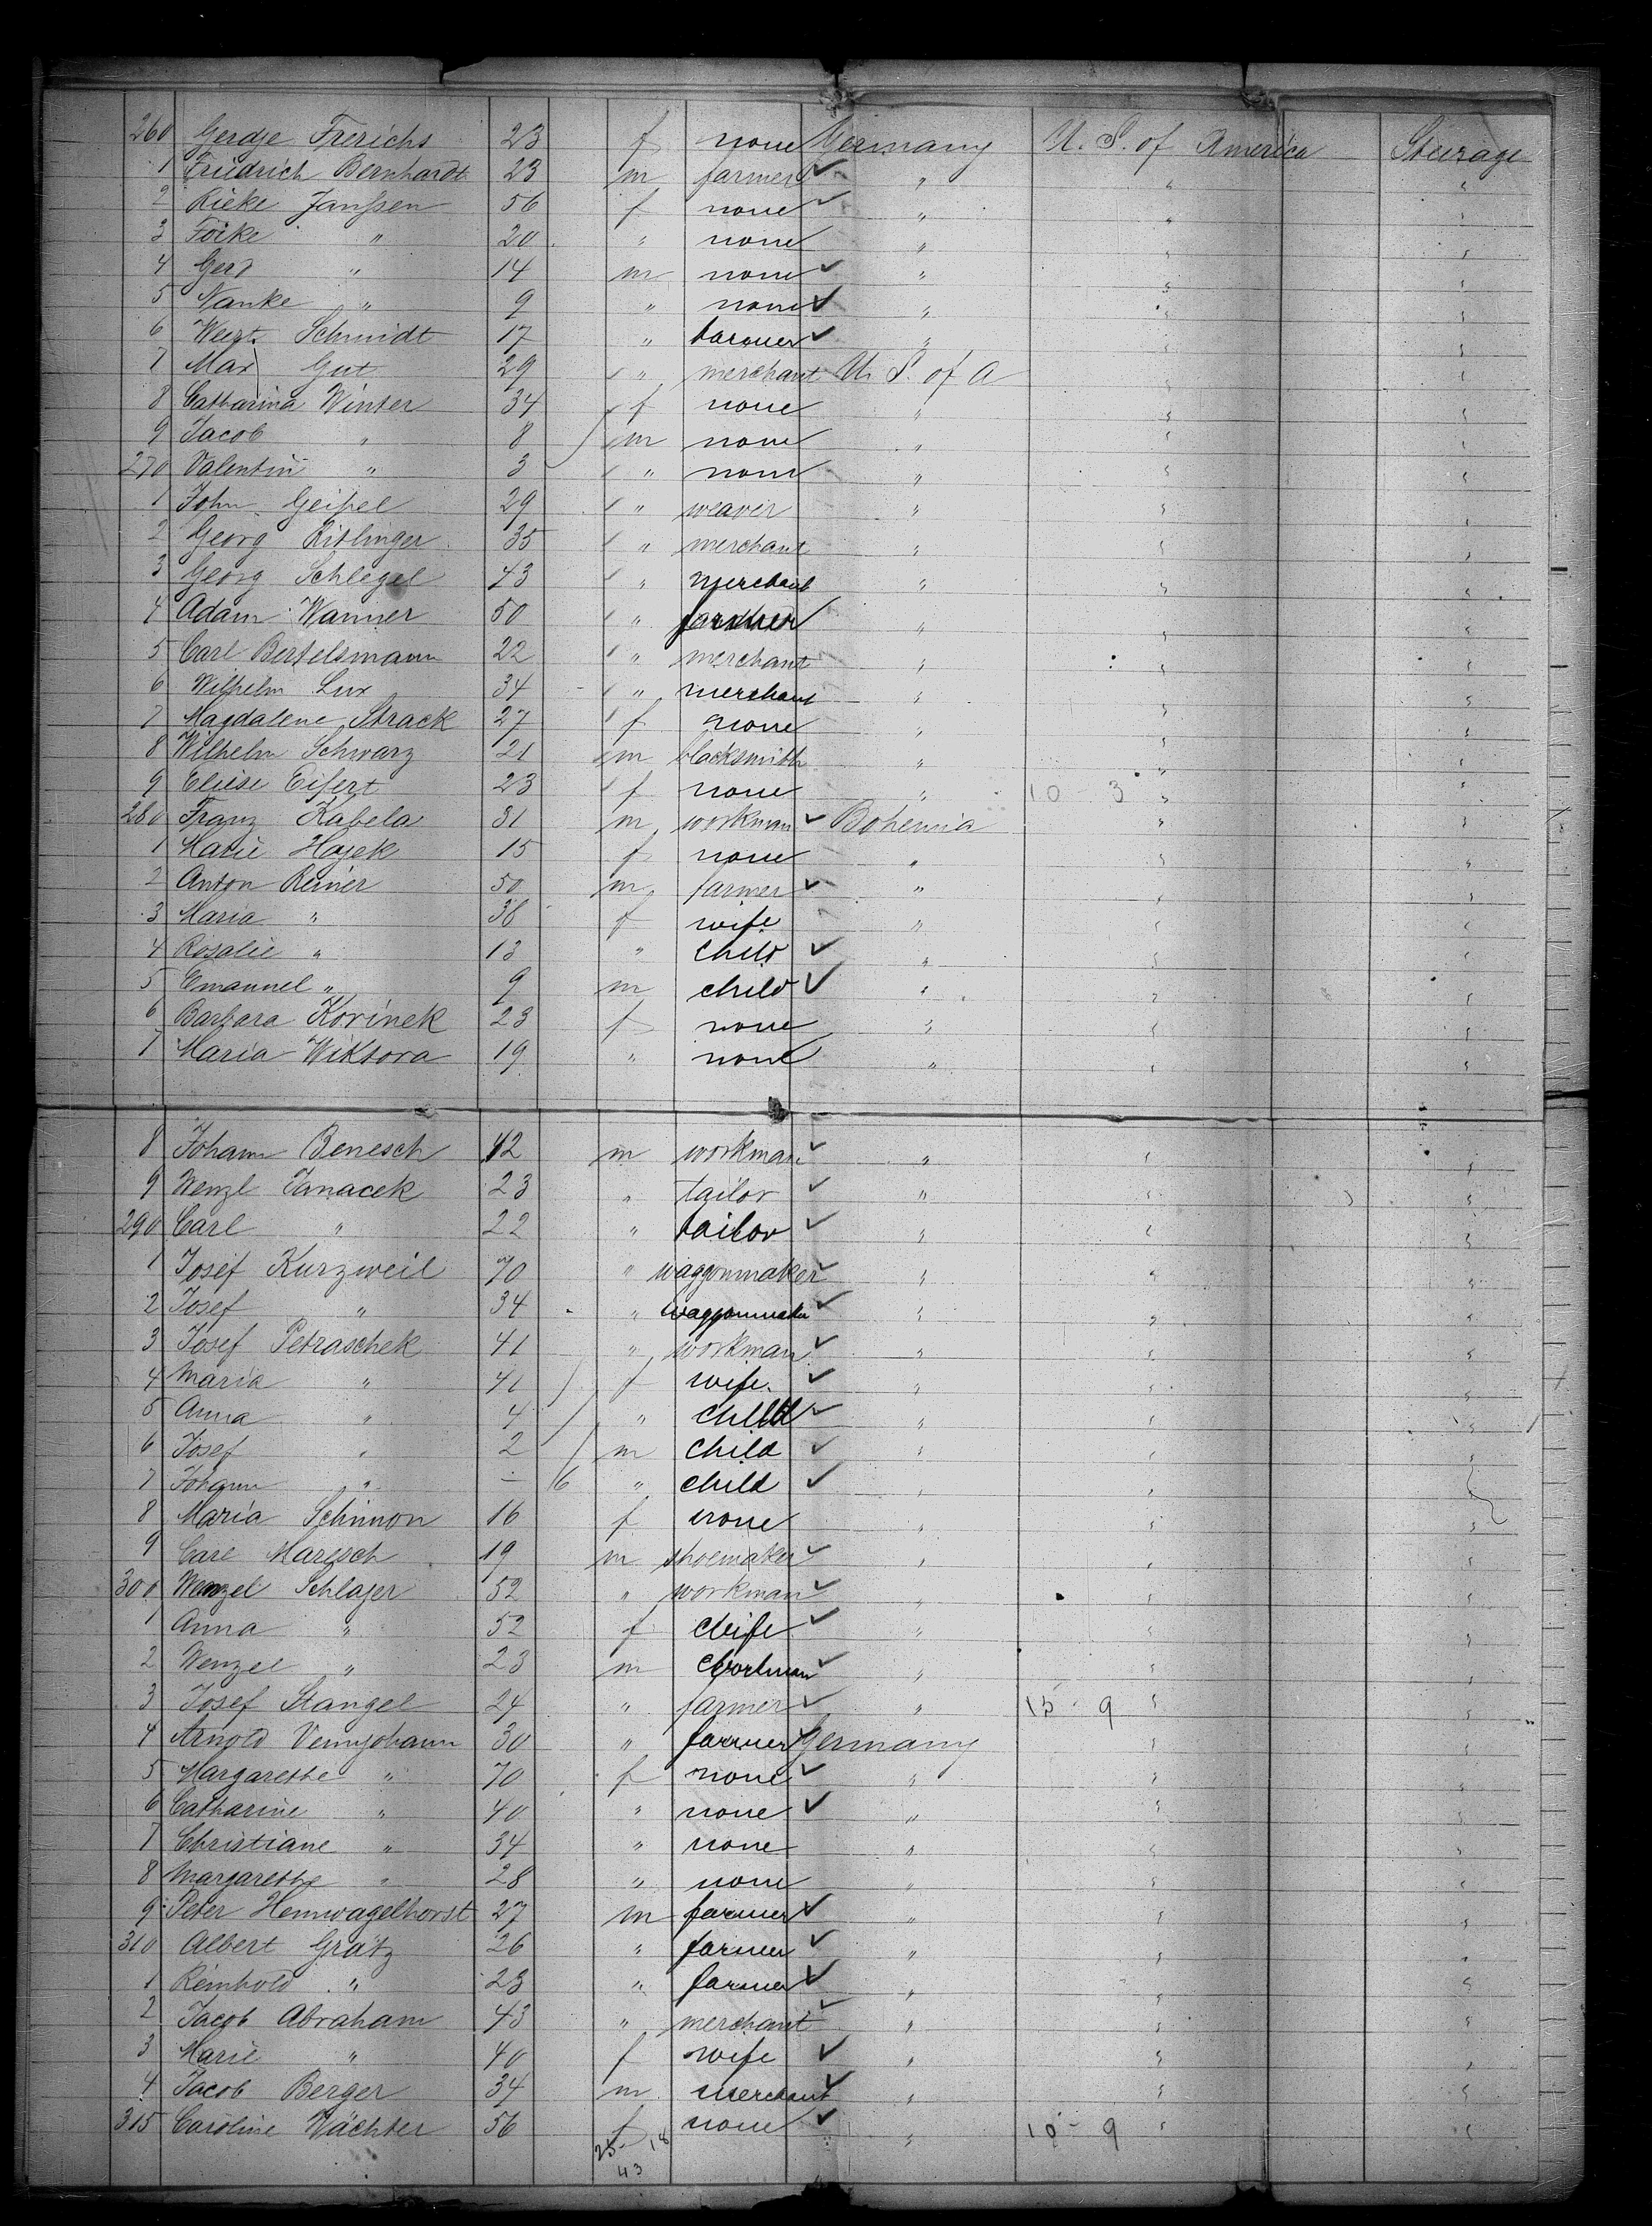 260 Gerdje Frerichs 23 f none Germany U. S. of America Steerage
1 Friedrich Bernhardt 23 m farmer " " "
2 Rieke Janssen 56 f none " " "
3 Foike " 20 " none " " "
4 Gerd " 14 m none " " "
5 Nanke " 9 " none " " "
6 Weert Schmidt 17 " farmer " " "
7 Max Gut 29 " merchant U. S. of A " "
8 Catharina Winter 34 f none " " "
9 Jacob " 8 m none " " "
270 Valentin " 3 " none " " "
1 John Geipel 29 " weaver " " "
2 Georg Ritlinger 35 " merchant " " "
3 Georg Schlegel 43 " merchant " " "
4 Adam Wanner 50 " farmer " " "
5 Carl Bertelsmann 22 " merchant " " "
6 Wilhelm Lux 34 " merchant " " "
7 Magdalene Strack 27 f none " " "
8 Wilhelm Schwarz 21 m blacksmith " " "
9 Eliese Eifert 23 f none " 10 - 3 " "
280 Franz Kabela 31 m workman Bohemia " "
1 Marie Hajek 15 f none " " "
2 Anton Reiner 50 m farmer " " "
3 Maria " 38 f wife " " "
4 Rosalie " 13 " child " " "
5 Emanuel " 9 m child " " "
6 Barbara Korinek 23 f none " " "
7 Maria Wiktora 19 " none " " "
8 Johann Benesch 42 m workman " " "
9 Wenzl Janacek 23 " tailor " " "
290 Carl " 22 " tailor " " "
1 Josef Kurzweil 70 " waggonmaker " " "
2 Josef " 34 " waggonmaker " " "
3 Josef Petraschek 41 " workman " " "
4 Maria " 41 f wife " " "
5 Anna " 4 " child " " "
6 Josef " 2 m child " " "
7 Johann " - 6 " child " " "
8 Maria Schimon 16 f none " " "
9 Carl Maresch 19 m shoemaker " " "
300 Wenzel Schlajer 52 " workman " " "
1 Anna " 52 f wife " " "
2 Wenzel " 23 m workman " " "
3 Josef Stangel 24 " farmer " 15 - 9 " "
4 Arnold Vennjohann 30 " farmer Germany " "
5 Margarethe " 70 f none " " "
6 Catharine " 40 " none " " "
7 Christiane " 34 " none " " "
8 Margarethe " 28 " none " " "
9 Peter Hemwagelhorst 27 m farmer " " "
310 Albert Grätz 26 " farmer " " "
1 Reinhold " 23 " farmer " " "
2 Jacob Abraham 43 " merchant " " "
3 Marie " 40 f wife " " "
4 Jacob Berger 34 m merchant " " "
315 Caroline Wächter 56 f none " 10 - 9 " "
25 - 18
43